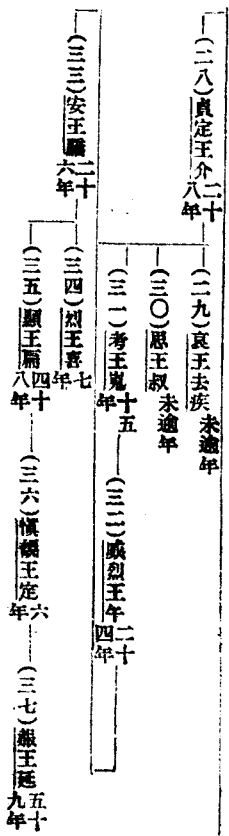 (二八)貞定王介二十八年
(二九)哀王去疾未逾年
(三〇)思王叔未逾年
(三一)考王嵬十五年
(三二)威烈王午二十四年
(三三)安王驕二十六年
(三四)烈王喜七年
(三五)顯王扁四十八年
(三六)愼靚王定六年
(三七)赧王延五十九年